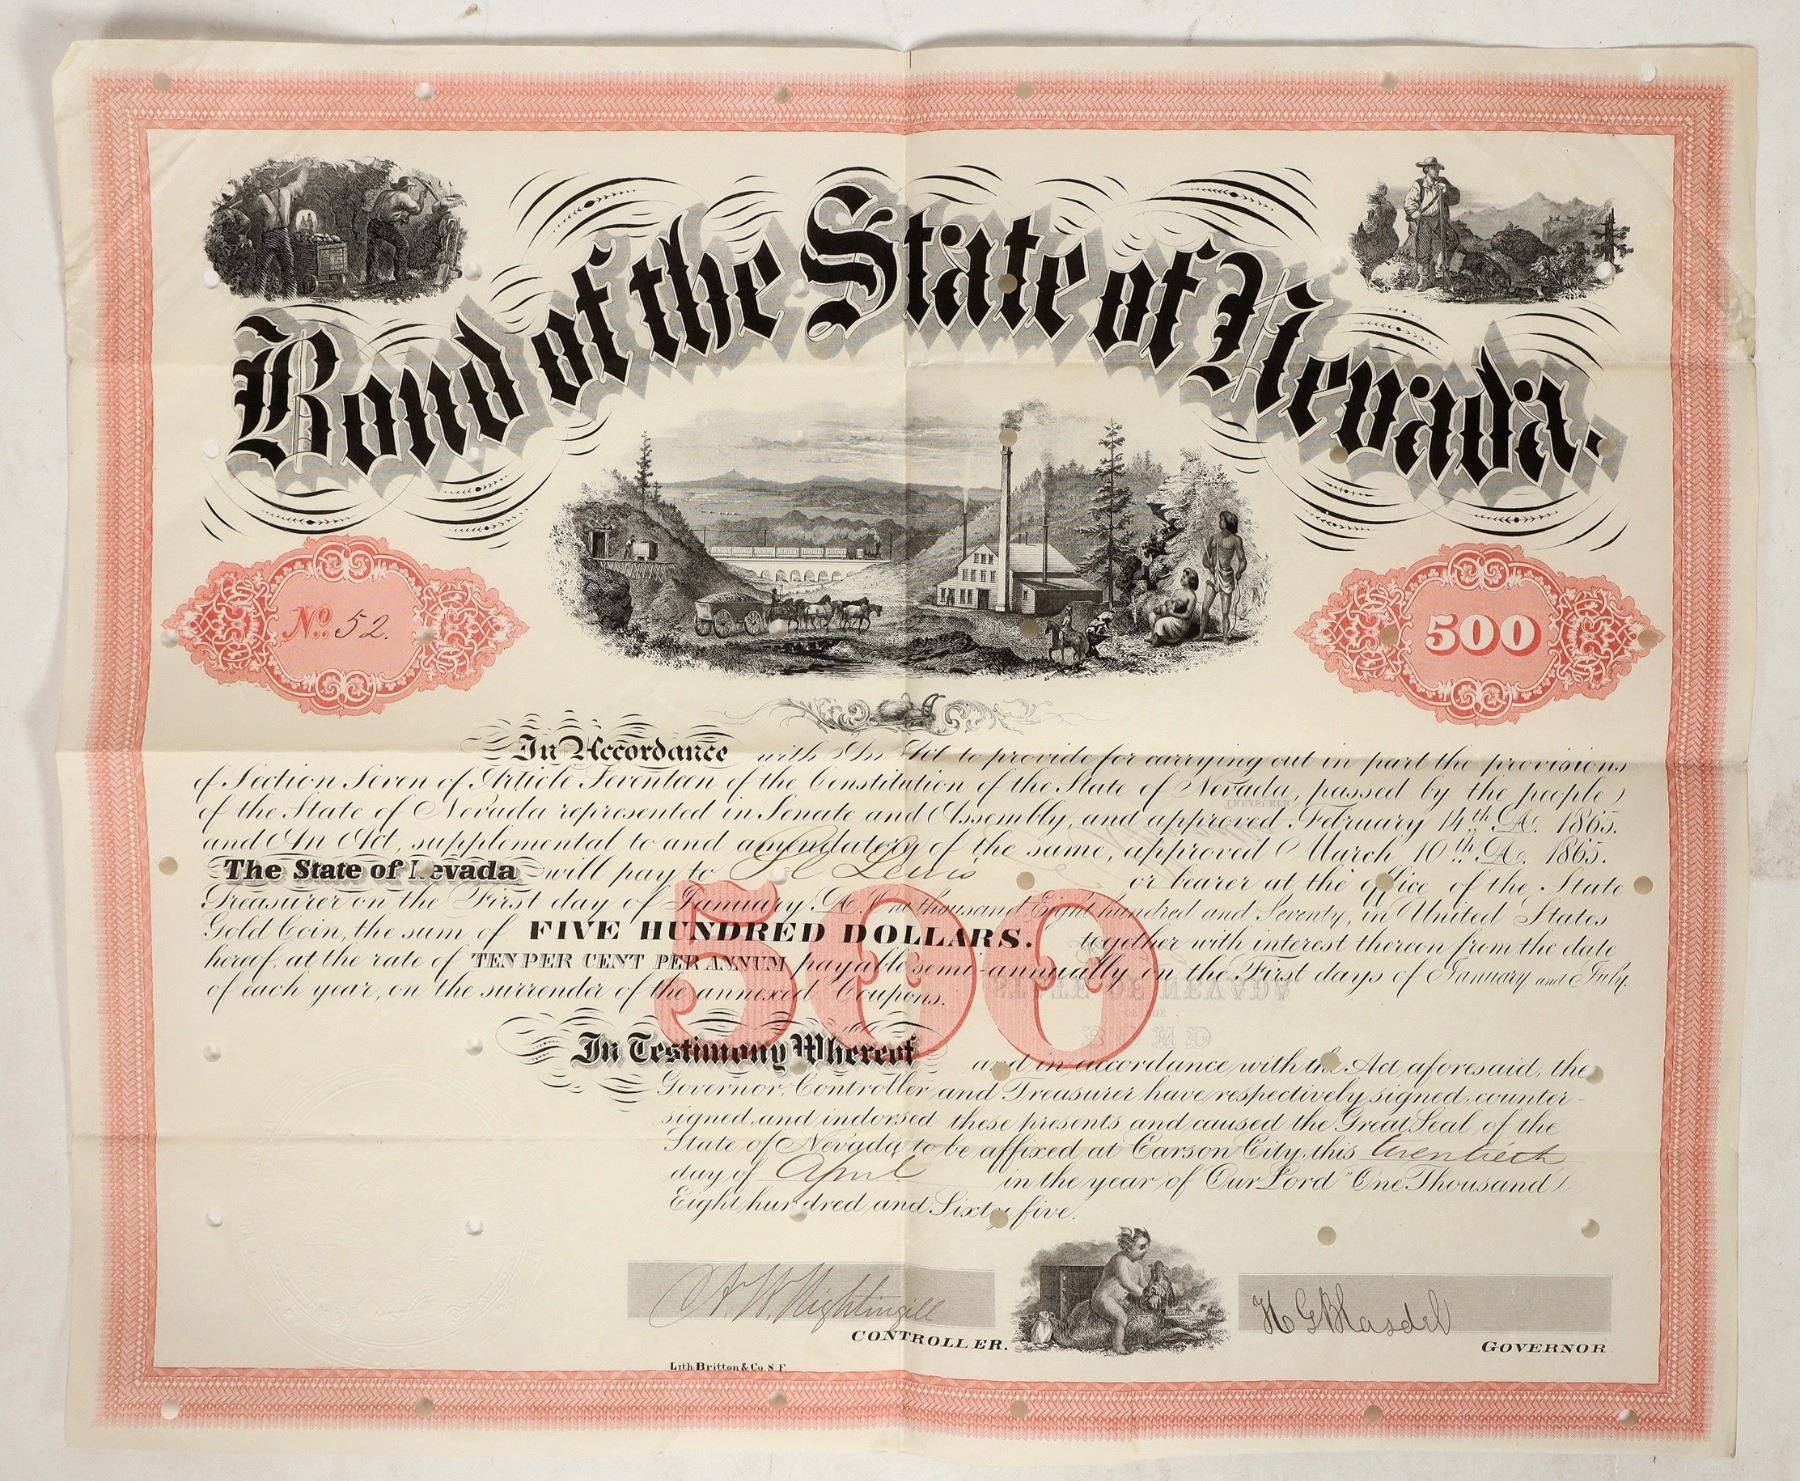 Bond of the State of Nevada.
No. 52.
500
In Accordance with An Act to provide for carrying out in part the provisions
of Section Seven of Article Seventeen of the Constitution of the State of Nevada, passed by the people
of the State of Nevada represented in Senate and Assembly, and approved February 14th A.D. 1865.
and An Act, supplemental to and amendatory of the same, approved March 10th A.D. 1865.
The State of Nevada will pay to Lewis or bearer at the office of the State
Treasurer on the First day of January A.D. One thousand Eight hundred and Seventy, in United States
Gold Coin, the sum of FIVE HUNDRED DOLLARS. together with interest thereon from the date
hereof, at the rate of TEN PER CENT PER ANNUM payable semi-annually on the First days of January and July
of each year, on the surrender of the annexed Coupons.
500
In Testimony Whereof and in accordance with the Act aforesaid, the
Governor, Controller, and Treasurer have respectively signed, counter-
signed, and indorsed these presents and caused the Great Seal of the
State of Nevada to be affixed at Carson City, this twentieth
day of April in the year of Our Lord One Thousand
Eight hundred and Sixty five.
A. W. Nightingill
CONTROLLER.
H G Blasdel
GOVERNOR
Lith Britton & Co. S.F.